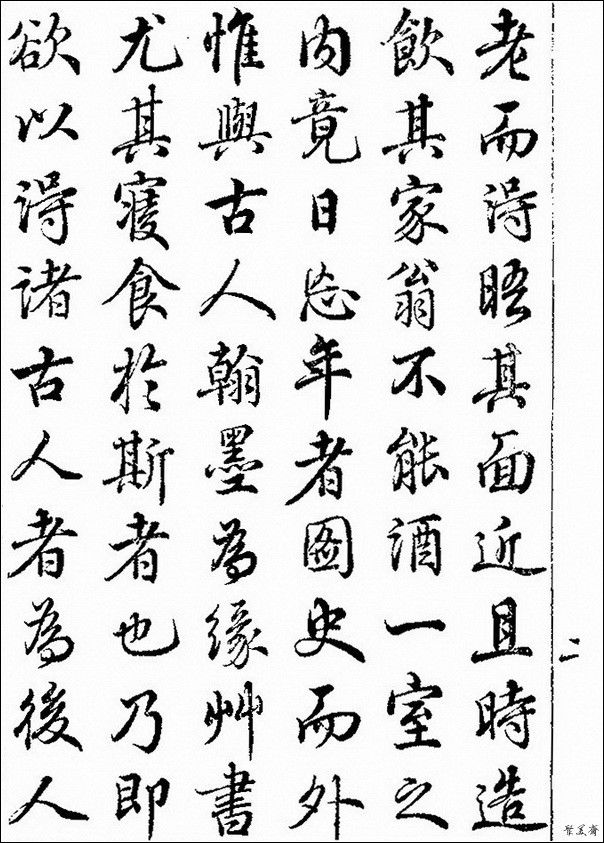 老而得晤其面近且時造
飲其家翁不能酒一室之
内竟日忘年者圖史而外
惟與古人翰墨為緣艸書
尤其寢食於斯者也乃即
欲以得諸古人者為後人
二